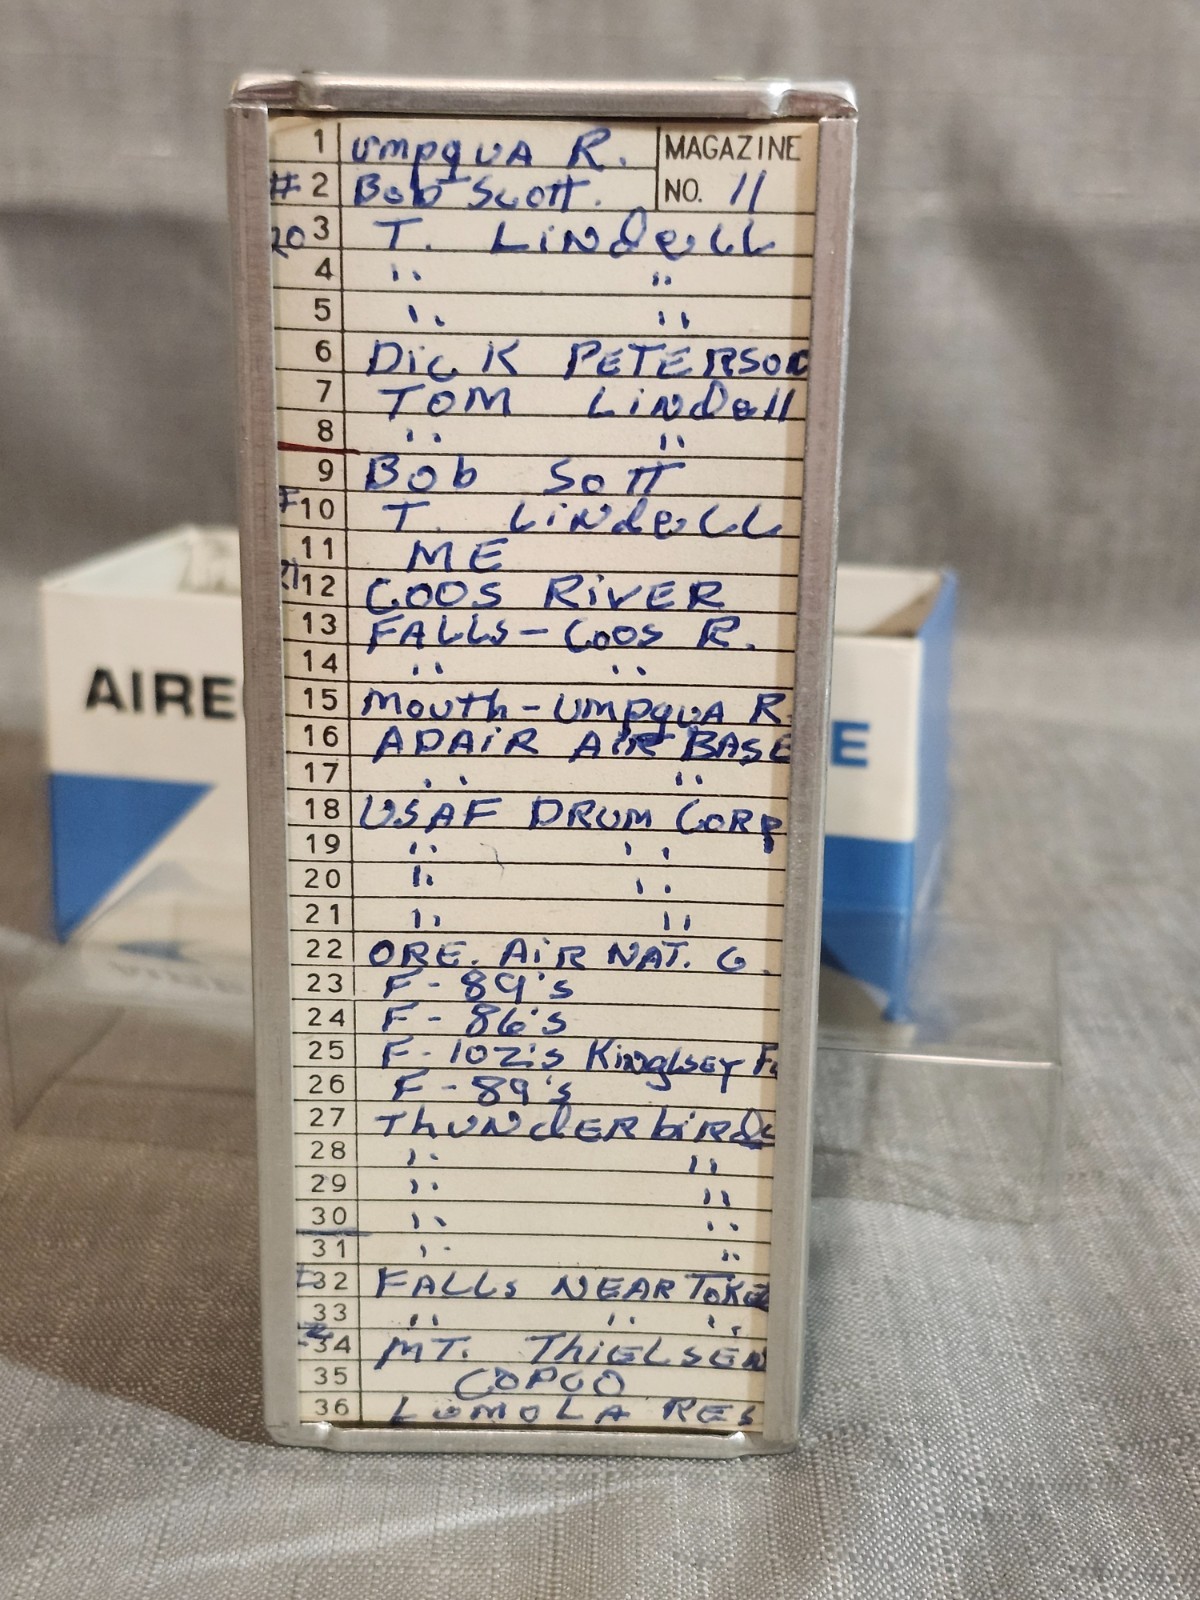 1 UMPQUA R. MAGAZINE
# 2 Bob Scott. NO. 11
20 3 T. Lindell
4 " "
5 " "
6 Dick PETERSON
7 TOM Lindell
8 " "
9 Bob Sott
F 10 T. Lindell
11 ME
21 12 COOS RiVER
13 FALLS - Coos R.
14 " "
15 Mouth - UMPQUA R.
16 ADAiR AIR BASE
17 " "
18 USAF DRUM CORP
19 " "
20 " "
21 " "
22 ORE. AiR NAT. G.
23 F - 89's
24 F - 86's
25 F - 102's Kinglsey
26 F - 89's
27 ThUNdERbiRds
28 " "
29 " "
30 " "
31 " "
32 FALLS NEAR TOKE
33 " " "
34 MT. ThiELSEN
35 COPCO
36 LEMOLA RES
AIRE
E